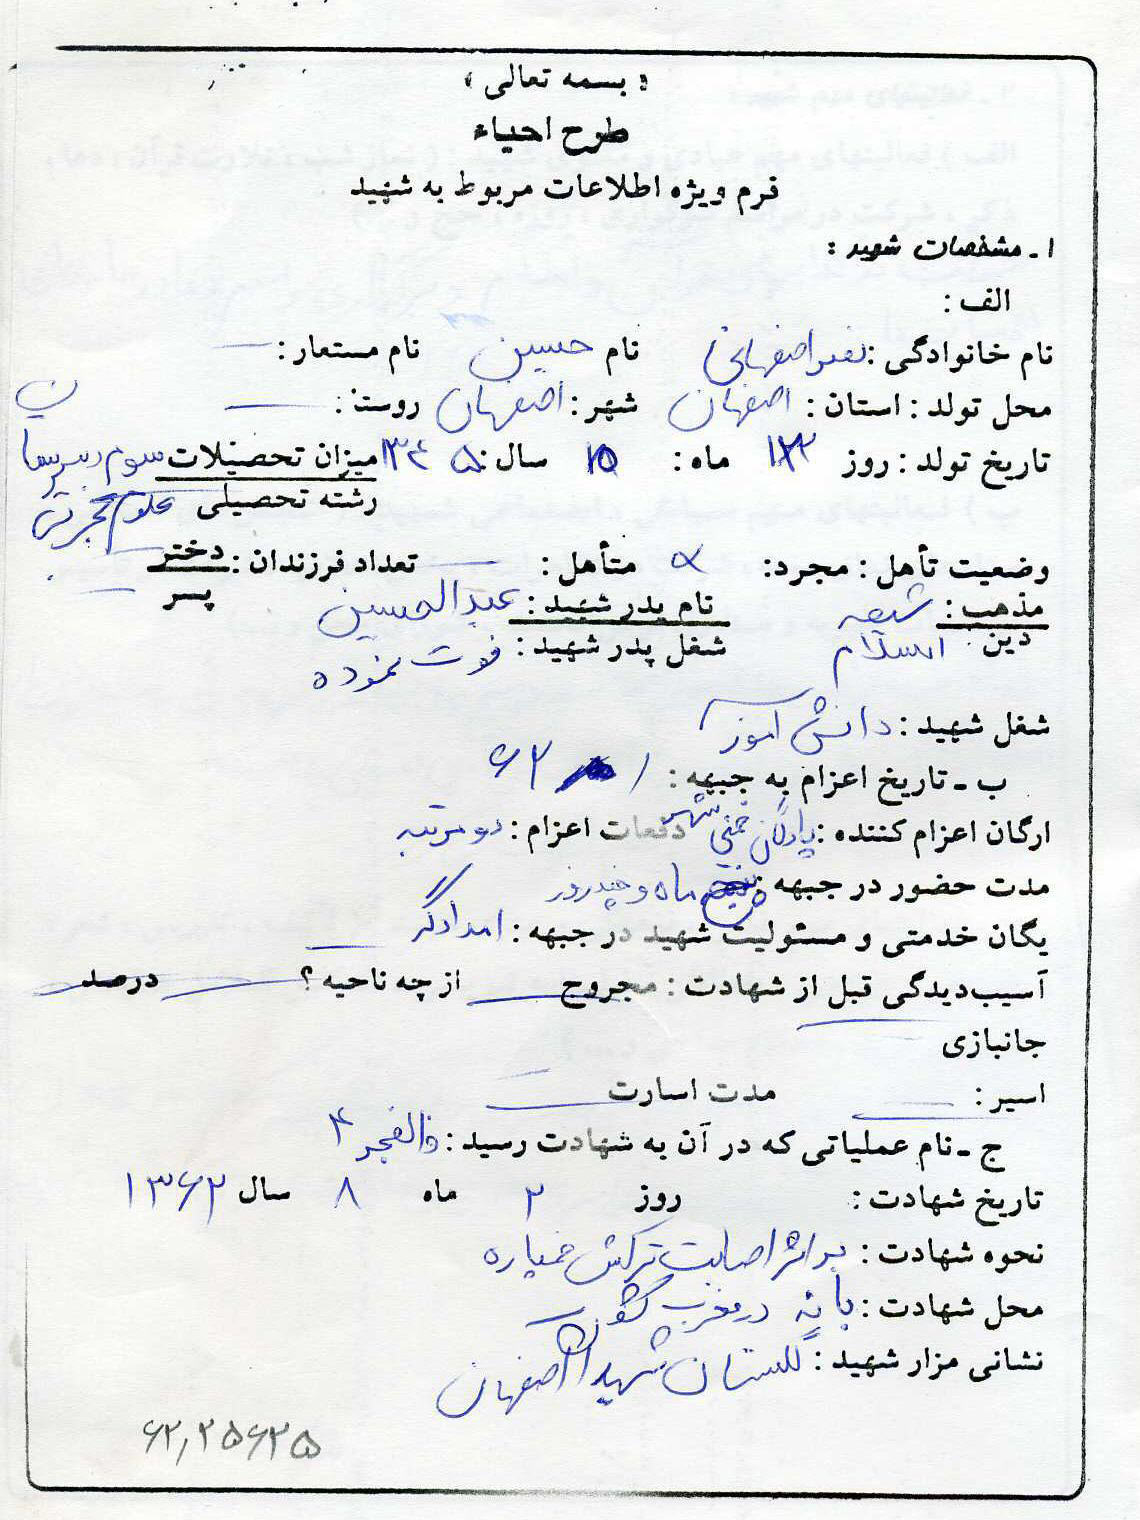 « بسمه تعالی »
طرح احیاء
فرم ویژه اطلاعات مربوط به شهید
۱ ـ مشخصات شهید :
الف :
نام خانوادگی : نصر اصفهانی نام حسین نام مستعار : —
محل تولد : استان : اصفهان شهر : اصفهان روستا : —
تاریخ تولد : روز ماه : سال : میزان تحصیلات سوم دبیرستان
رشته تحصیلی علوم تجربی
وضعیت تأهل : مجرد : متأهل : — تعداد فرزندان : دختر —
پسر —
مذهب : شیعه نام پدر شهید : عبدالحسین
دین : اسلام شغل پدر شهید : فوت نموده
شغل شهید : دانش آموز
ب ـ تاریخ اعزام به جبهه : ۶۲
ارگان اعزام کننده : پادگان خمینی شهر دفعات اعزام : دو مرتبه
مدت حضور در جبهه : ماه و چند روز
یگان خدمتی و مسئولیت شهید در جبهه : امدادگر
آسیب‌دیدگی قبل از شهادت : مجروح — از چه ناحیه ؟ — درصد
جانبازی —
اسیر : — مدت اسارت —
ج ـ نام عملیاتی که در آن به شهادت رسید : والفجر ۴
تاریخ شهادت : روز ۲ ماه ۸ سال ۱۳۶۲
نحوه شهادت : بر اثر اصابت ترکش خمپاره
محل شهادت : بانه در غرب کشور
نشانی مزار شهید : گلستان شهدای اصفهان
۶۲,۲۵۶۲۵